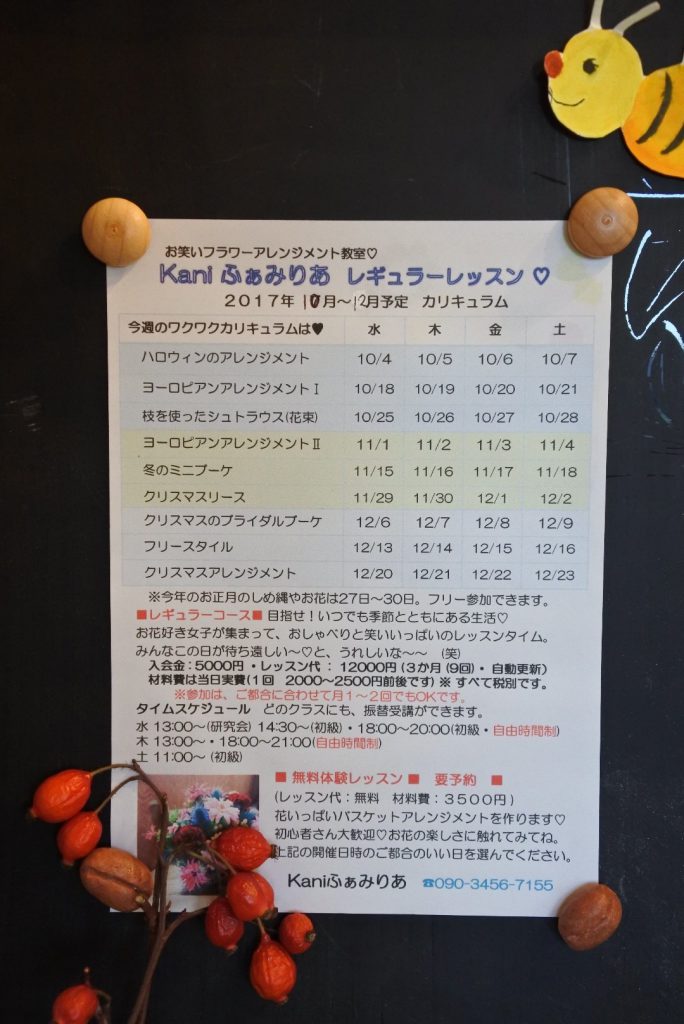 お笑いフラワーアレンジメント教室♡
Kani ふぁみりあ レギュラーレッスン ♡
2017年 10月～12月予定 カリキュラム
今週のワクワクカリキュラムは♥ 水 木 金 土
ハロウィンのアレンジメント 10/4 10/5 10/6 10/7
ヨーロピアンアレンジメントⅠ 10/18 10/19 10/20 10/21
枝を使ったシュトラウス(花束) 10/25 10/26 10/27 10/28
ヨーロピアンアレンジメントⅡ 11/1 11/2 11/3 11/4
冬のミニブーケ 11/15 11/16 11/17 11/18
クリスマスリース 11/29 11/30 12/1 12/2
クリスマスのブライダルブーケ 12/6 12/7 12/8 12/9
フリースタイル 12/13 12/14 12/15 12/16
クリスマスアレンジメント 12/20 12/21 12/22 12/23
※今年のお正月のしめ縄やお花は27日～30日。フリー参加できます。
■レギュラーコース■ 目指せ！いつでも季節とともにある生活♡
お花好き女子が集まって、おしゃべりと笑いいっぱいのレッスンタイム。
みんなこの日が待ち遠しい～♡と、うれしいな～～ (笑)
入会金：5000円・レッスン代 ： 12000円 (3か月 (9回)・ 自動更新)
材料費は当日実費(1回 2000～2500円前後です) ※ すべて税別です。
※参加は、ご都合に合わせて月1～2回でもOKです。
タイムスケジュール どのクラスにも、振替受講ができます。
水 13:00～(研究会) 14:30～(初級)・18:00～20:00(初級・自由時間制)
木 13:00～・18:00～21:00(自由時間制)
土 11:00～ (初級)
■ 無料体験レッスン ■ 要予約 ■
(レッスン代：無料 材料費：3500円)
花いっぱいバスケットアレンジメントを作ります♡
初心者さん大歓迎♡お花の楽しさに触れてみてね。
上記の開催日時のご都合のいい日を選んでください。
Kaniふぁみりあ ☎090-3456-7155